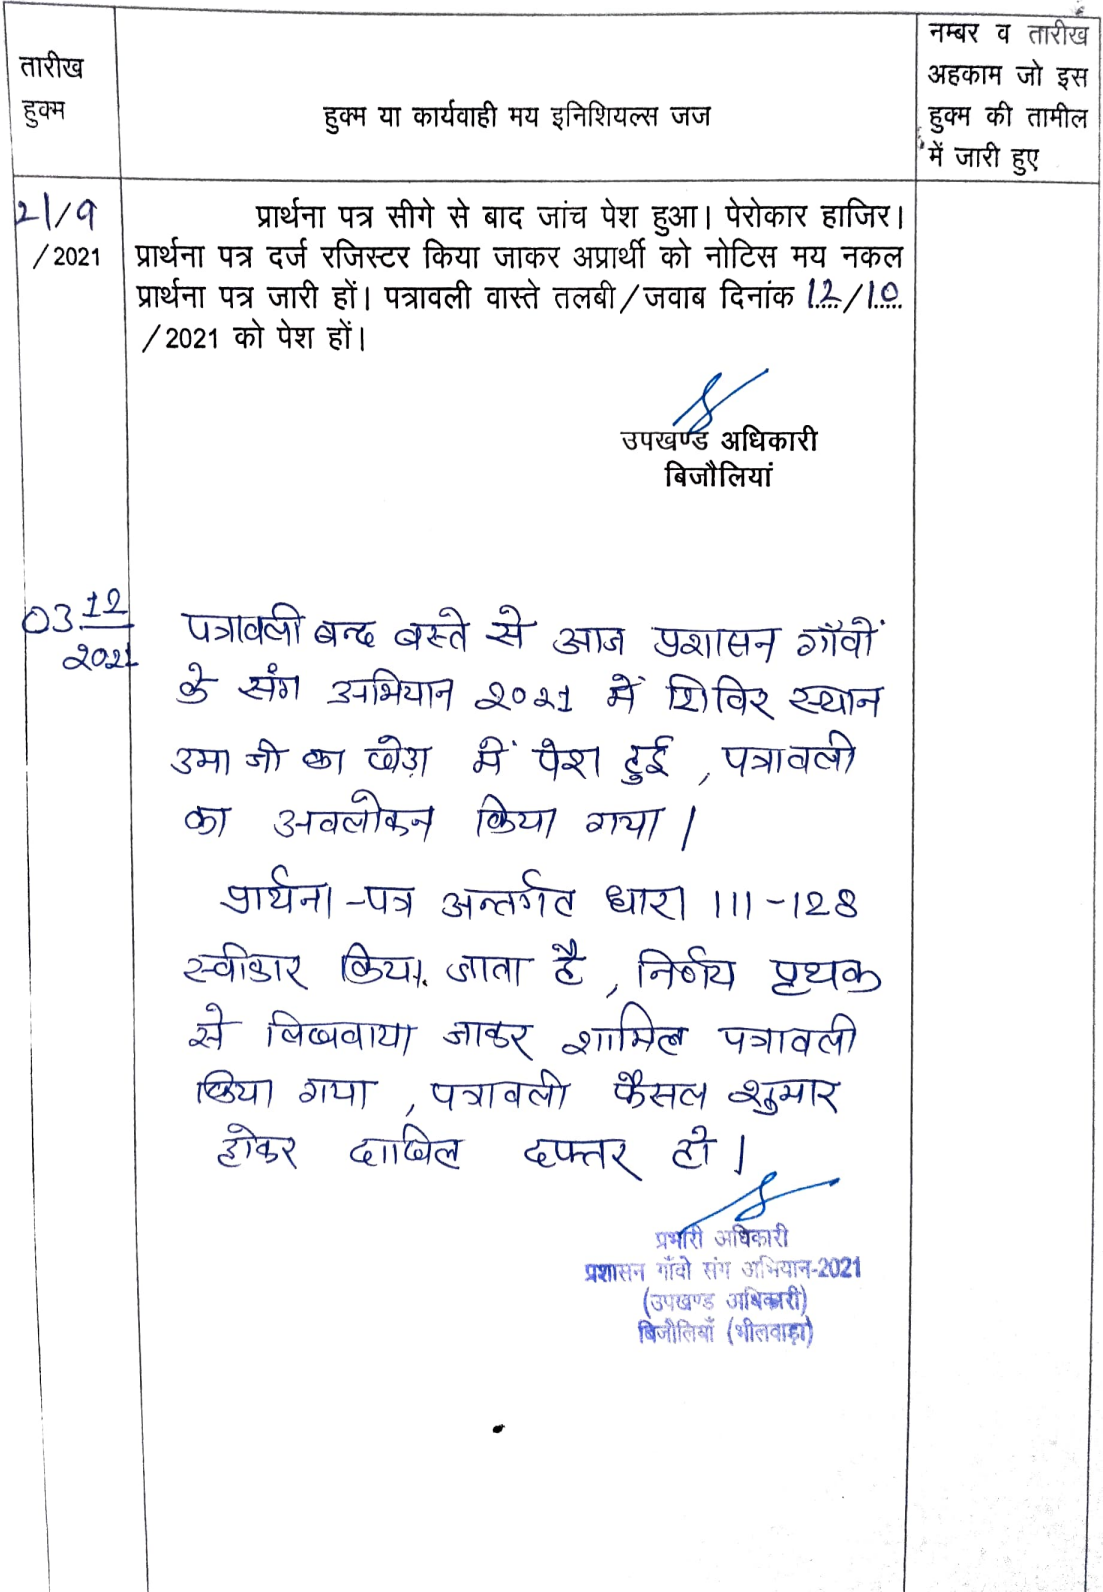 तारीख
हुक्म
हुक्म या कार्यवाही मय इनिशियल्स जज
नम्बर व तारीख
अहकाम जो इस
हुक्म की तामील
में जारी हुए
21/9
/2021
प्रार्थना पत्र सीगे से बाद जांच पेश हुआ। पेरोकार हाजिर।
प्रार्थना पत्र दर्ज रजिस्टर किया जाकर अप्रार्थी को नोटिस मय नकल
प्रार्थना पत्र जारी हों। पत्रावली वास्ते तलबी/जवाब दिनांक 12/10
/2021 को पेश हों।
उपखण्ड अधिकारी
बिजौलियां
03 12
2021
पत्रावली बन्द बस्ते से आज प्रशासन गाँवों
के संग अभियान 2021 में शिविर स्थान
उमा जी का खेडा में पेश हुई, पत्रावली
का अवलोकन किया गया।
प्रार्थना-पत्र अन्तर्गत धारा 111-128
स्वीकार किया जाता है, निर्णय पृथक
से लिखवाया जाकर शामिल पत्रावली
किया गया, पत्रावली फैसल शुमार
होकर दाखिल दफ्तर हो।
प्रभारी अधिकारी
प्रशासन गाँवो संग अभियान-2021
(उपखण्ड अधिकारी)
बिजौलियाँ (भीलवाड़ा)